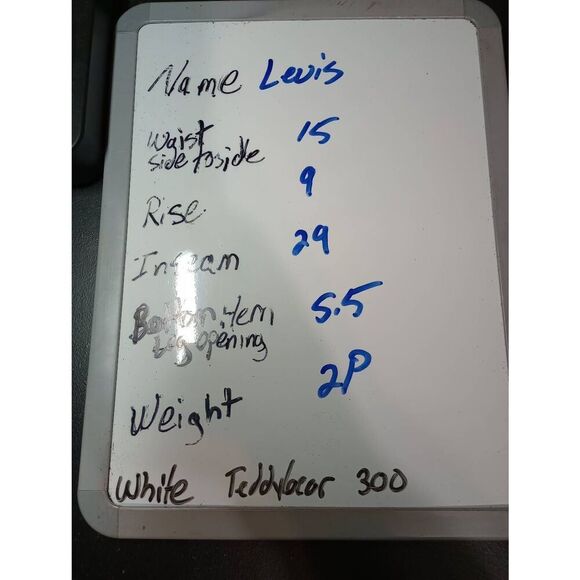 Name Levis
Waist 15
side to side
9
Rise
Inseam 29
Bottom Hem 5.5
Leg opening
2P
Weight
White Teddybear 300